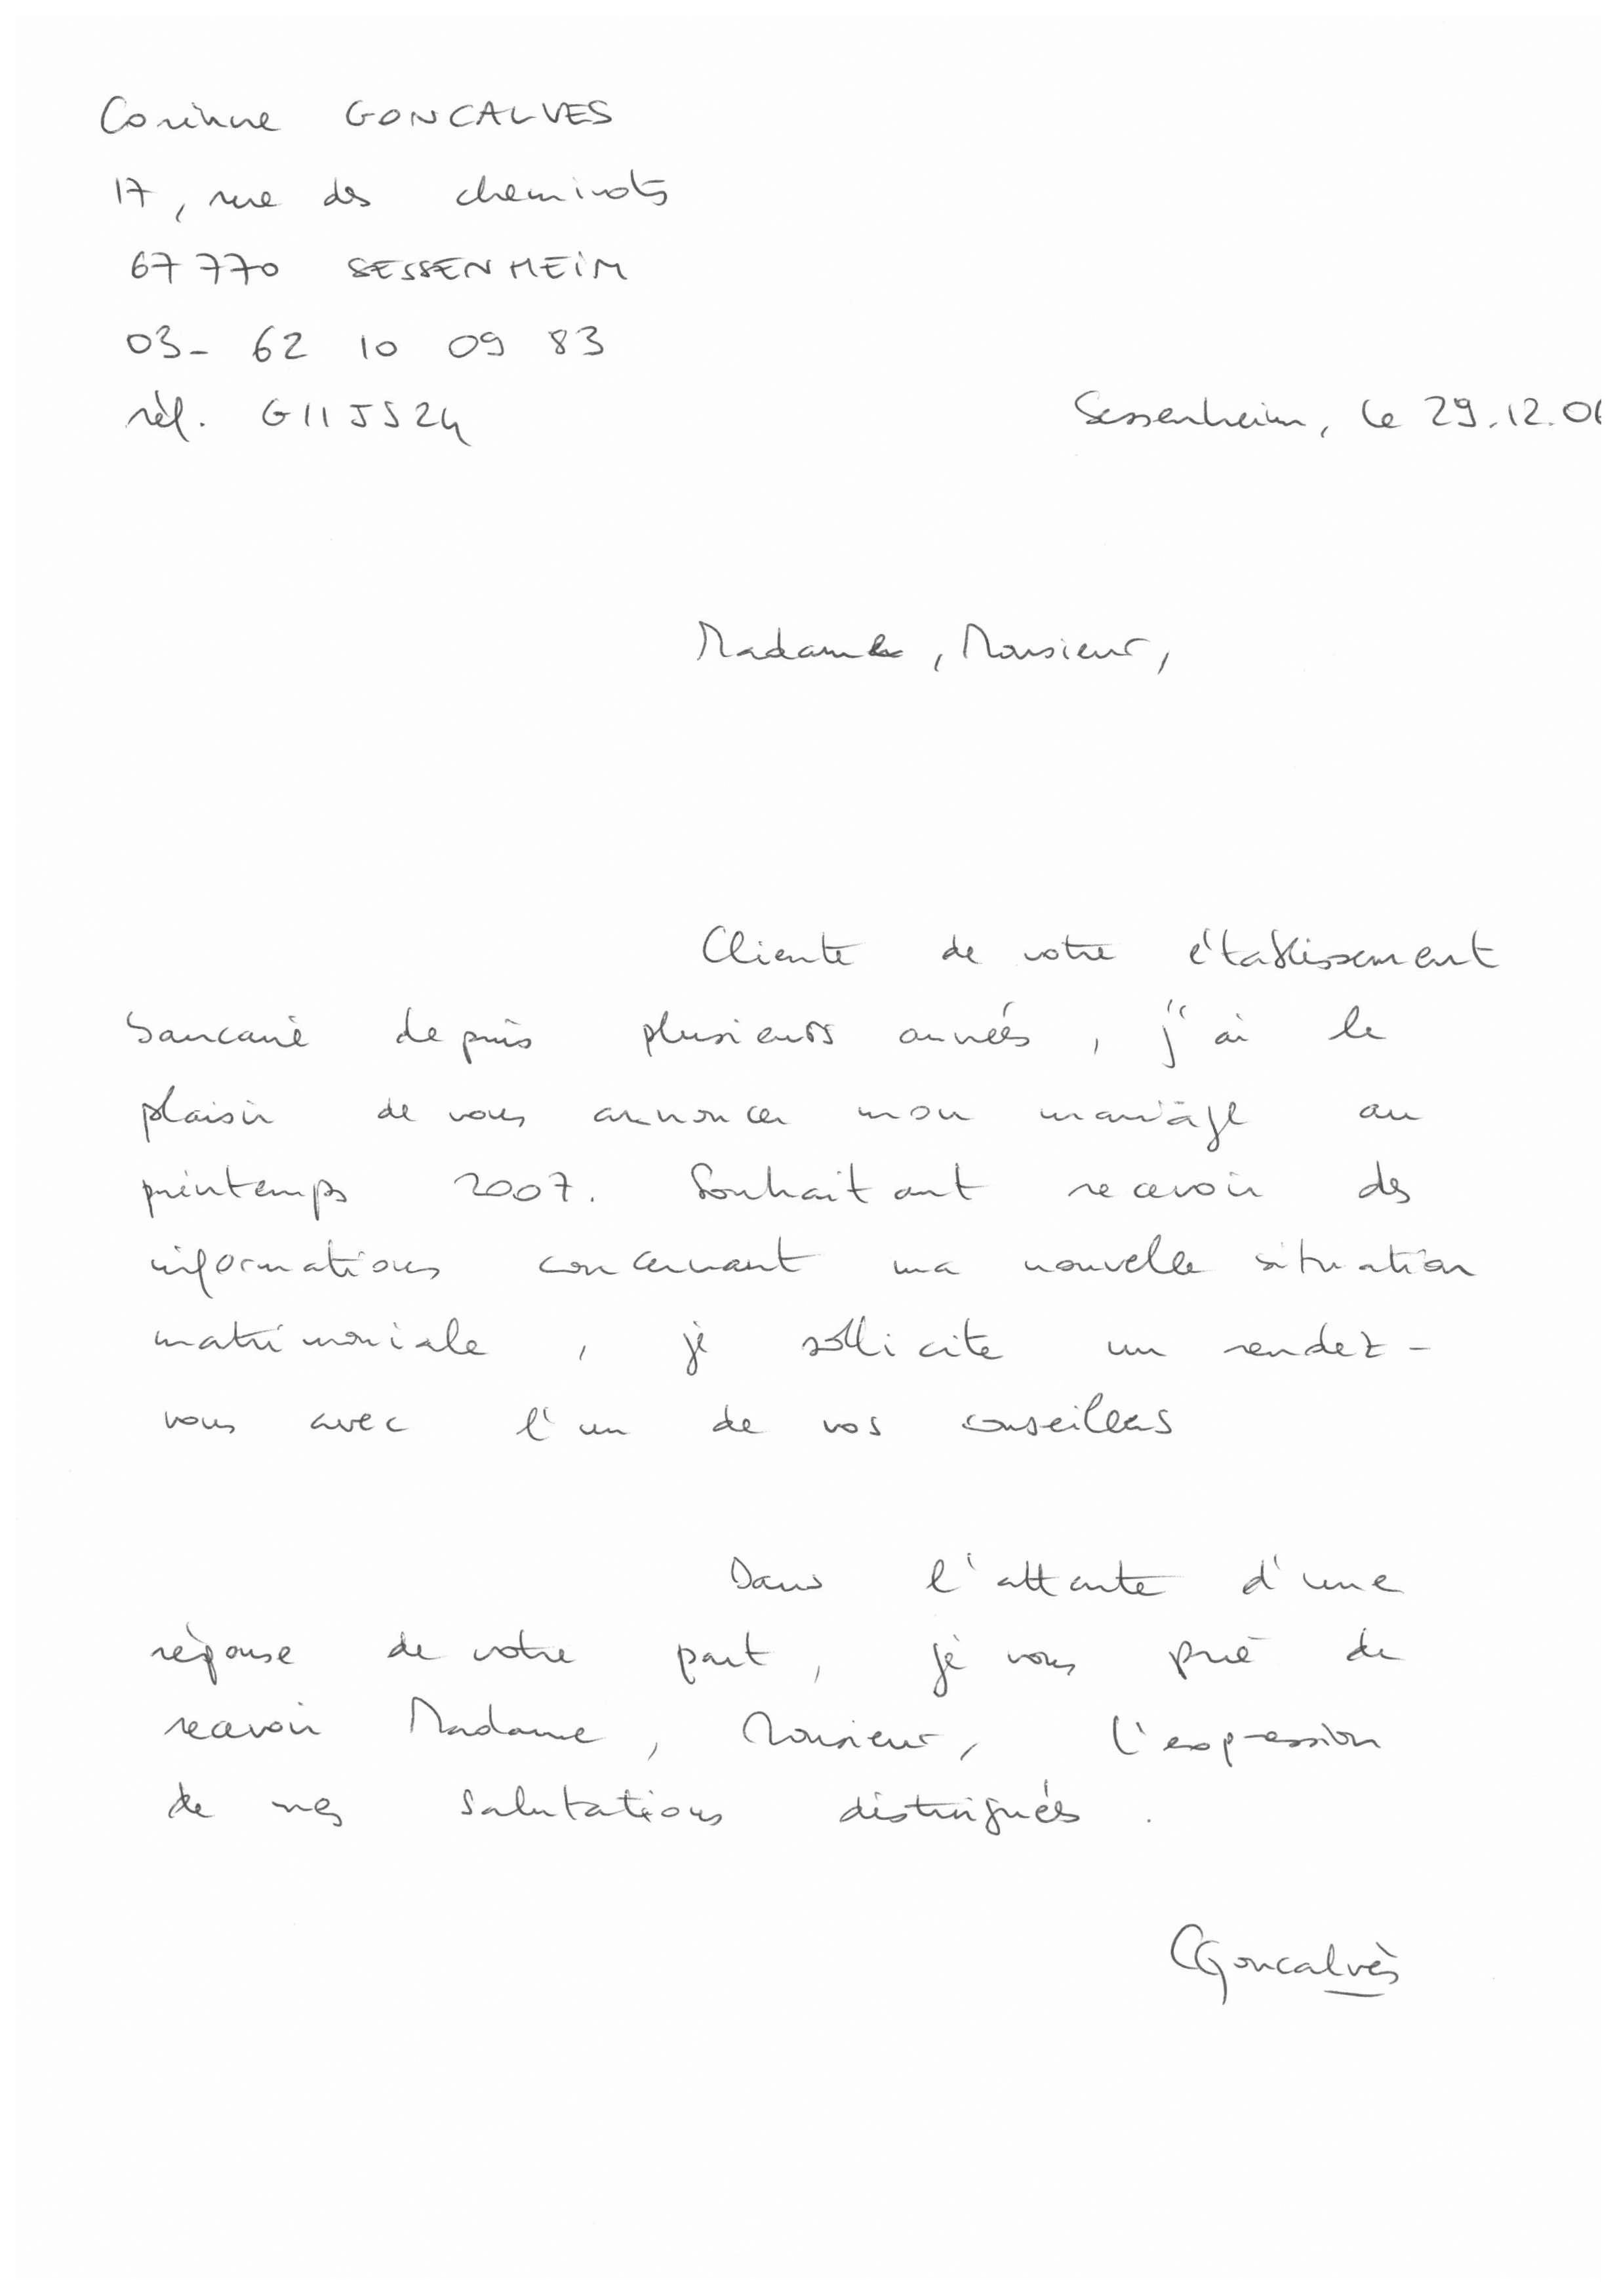 Corinne GONCALVES
17, rue des cheminots
67770 SESSENHEIM
03- 62 10 09 83
réf. G11JS24
Sessenheim, le 29.12.06
Madame, Monsieur,
Cliente de votre établissement
bancaire depuis plusieurs années, j'ai le
plaisir de vous annoncer mon mariage au
printemps 2007. Souhaitant recevoir des
informations concernant ma nouvelle situation
matrimoniale, je sollicite un rendez-
vous avec l'un de vos conseillers
Dans l'attente d'une
réponse de votre part, je vous prie de
recevoir Madame, Monsieur, l'expression
de mes salutations distinguées.
CGoncalvès